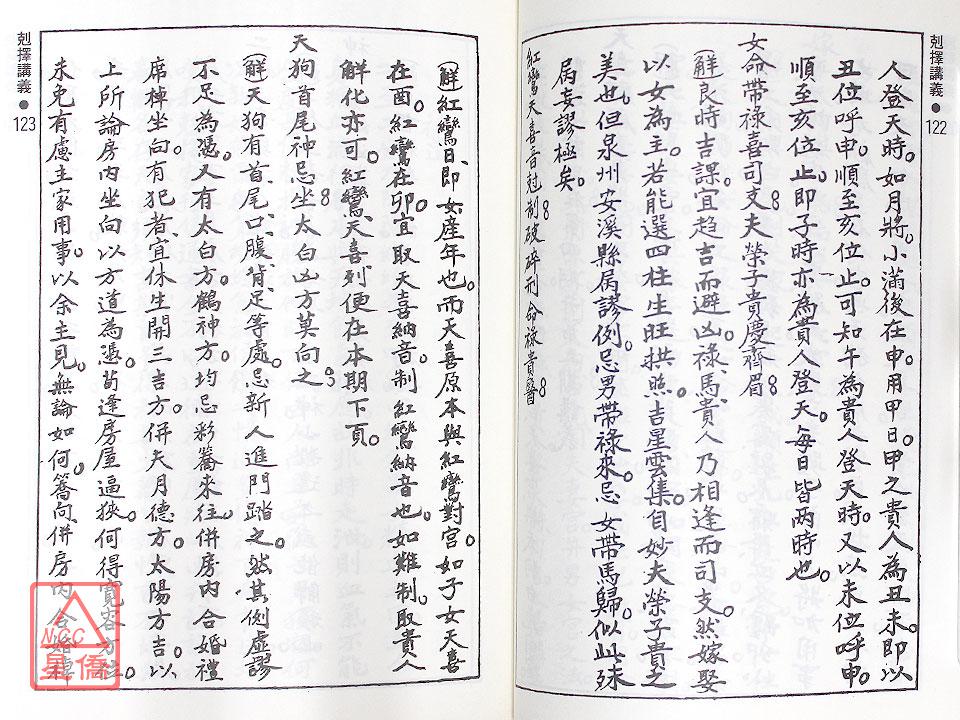 剋擇講義●122
人登天時。如月將小滿後在申。用甲日。甲之貴人為丑未。即以
丑位呼申。順至亥位止。可知午為貴人登天時。又以未位呼申。
順至亥位止。即子時亦為貴人登天。每日皆两時也。
女命帶祿喜司支。夫榮子貴慶齊眉。
(觧)良時吉課。宜趋吉而避凶。祿、馬、貴人乃相逢而司支。然嫁娶
以女為主。若能選四柱生旺拱照。吉星雲集。自妙。夫榮子貴之
美也。但泉州安溪縣屙謬例。忌男帶祿來。忌女帶馬歸。似此殊
屙妄謬極矣。
紅鸞天喜音尅制。破碎刑命祿貴醫。
(觧)紅鸞日、即女産年也。而天喜原本與紅鸞對宮。如子女天喜
在酉。紅鸞在卯。宜取天喜納音。制紅鸞納音也。如難制取貴人
觧化亦可。紅鸞、天喜列便在本期下頁。
天狗首尾神忌坐。太白凶方莫向之。
(觧)天狗有首、尾、口、腹、背、足等處。忌新人進門踏之。然其例虛謬
不足為憑。又有太白方。鶴神方。均忌彩轎來往。併房內合婚禮
席棹坐向。有犯者宜休生開三吉方。併天月德方。太陽方吉。以
上所論房內坐向以方道為憑。苟逢房屋逼狹。何得寬容方位。
未免有慮主家用事。以余主見。無論如何。簥向併房內合婚禮
剋擇講義●123
NCC
星僑